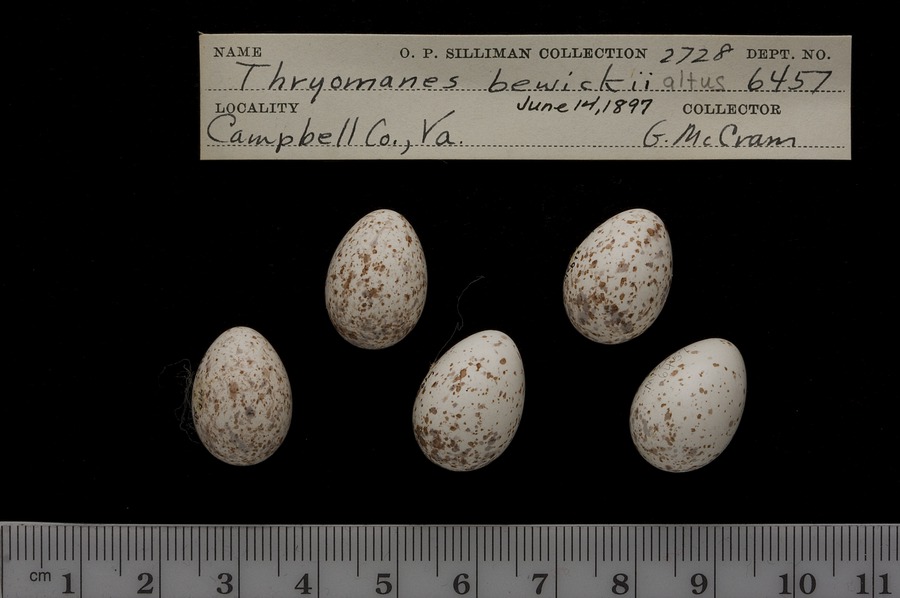 NAME O. P. SILLIMAN COLLECTION 2728 DEPT. NO.
Thryomanes bewickii altus 6457
LOCALITY June 14, 1897 COLLECTOR
Campbell Co., Va. G. McCram
cm 1 2 3 4 5 6 7 8 9 10 11